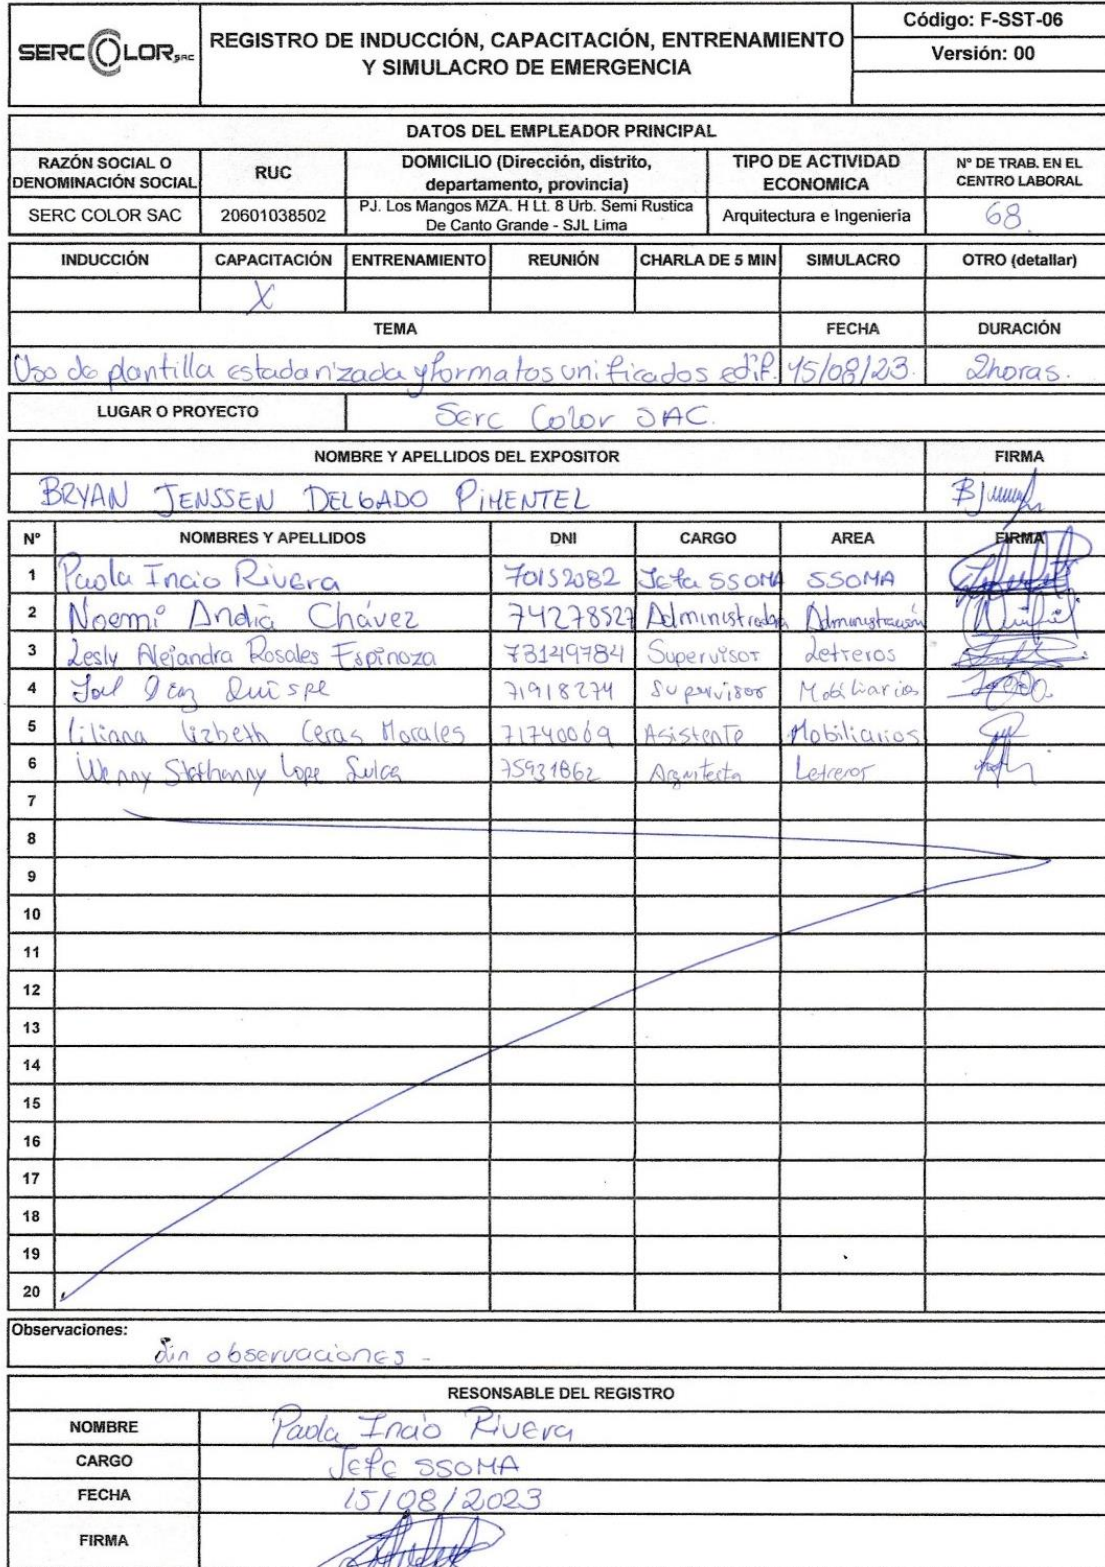 SERC COLOR SAC
REGISTRO DE INDUCCIÓN, CAPACITACIÓN, ENTRENAMIENTO
Y SIMULACRO DE EMERGENCIA
Código: F-SST-06
Versión: 00
DATOS DEL EMPLEADOR PRINCIPAL
RAZÓN SOCIAL O DENOMINACIÓN SOCIAL RUC DOMICILIO (Dirección, distrito, departamento, provincia) TIPO DE ACTIVIDAD ECONOMICA Nº DE TRAB. EN EL CENTRO LABORAL
SERC COLOR SAC 20601038502 PJ. Los Mangos MZA. H Lt. 8 Urb. Semi Rustica De Canto Grande - SJL Lima Arquitectura e Ingenieria 68
INDUCCIÓN CAPACITACIÓN ENTRENAMIENTO REUNIÓN CHARLA DE 5 MIN SIMULACRO OTRO (detallar)
X
TEMA FECHA DURACIÓN
Uso de plantilla estadarizada y formatos unificados edif. 15/08/23. 2horas.
LUGAR O PROYECTO Serc Color SAC.
NOMBRE Y APELLIDOS DEL EXPOSITOR FIRMA
BRYAN JENSSEN DELGADO PIMENTEL
Nº NOMBRES Y APELLIDOS DNI CARGO AREA FIRMA
1 Paola Incio Rivera 70152082 Jefa SSOMA SSOMA
2 Noemi Andia Chávez 74278527 Administradora Administración
3 Lesly Alejandra Rosales Espinoza 73149784 Supervisor Letreros
4 Joel Diaz Quispe 71918274 Supervisor Mobiliarios
5 Liliana Lizbeth Ceras Morales 71740069 Asistente Mobiliarios
6 Wenny Stefhanny Lope Sulca 75931862 Arquitecta Letreros
7
8
9
10
11
12
13
14
15
16
17
18
19
20
Observaciones:
Sin observaciones -
RESONSABLE DEL REGISTRO
NOMBRE Paola Incio Rivera
CARGO Jefe SSOMA
FECHA 15/08/2023
FIRMA